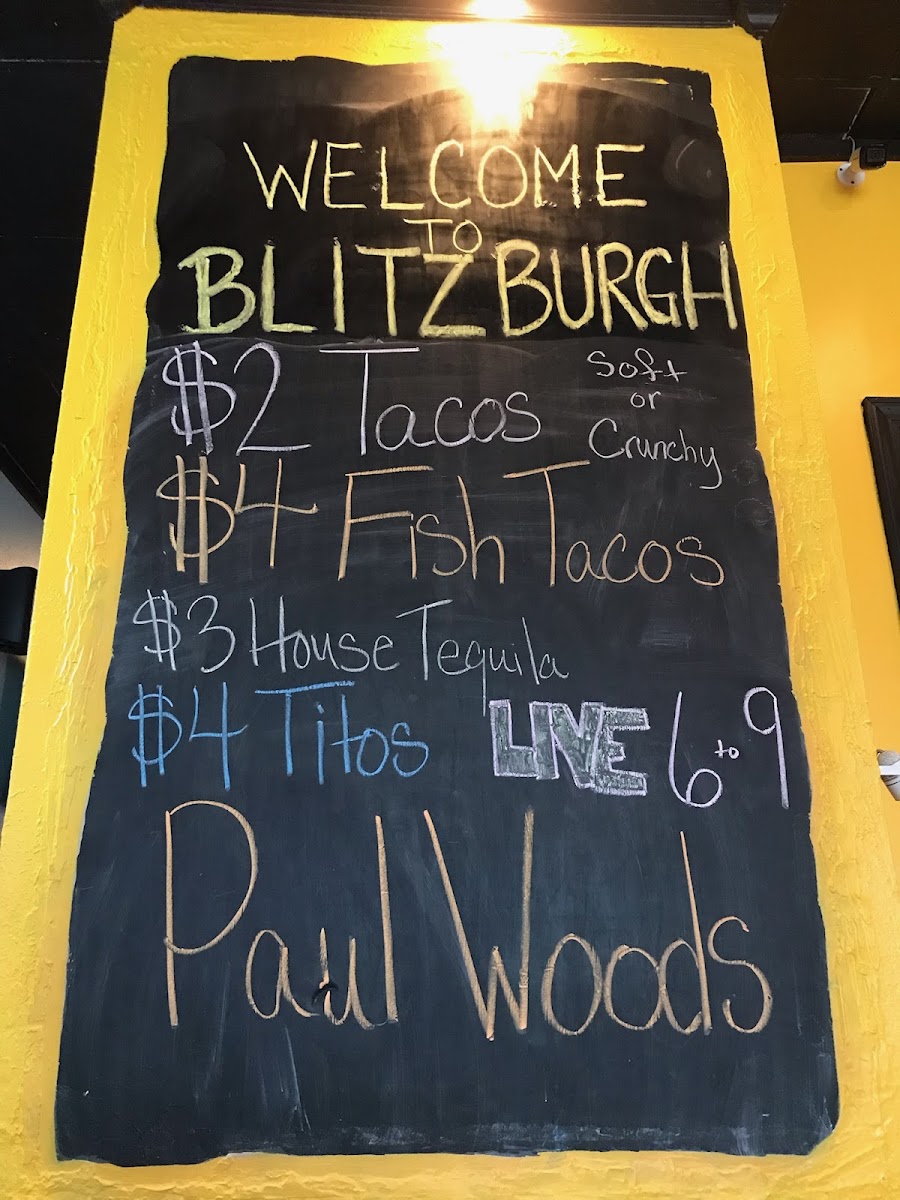 WELCOME
TO
BLITZBURGH
$2 Tacos Soft or Crunchy
$4 Fish Tacos
$3 House Tequila
$4 Titos LIVE 6 to 9
Paul Woods